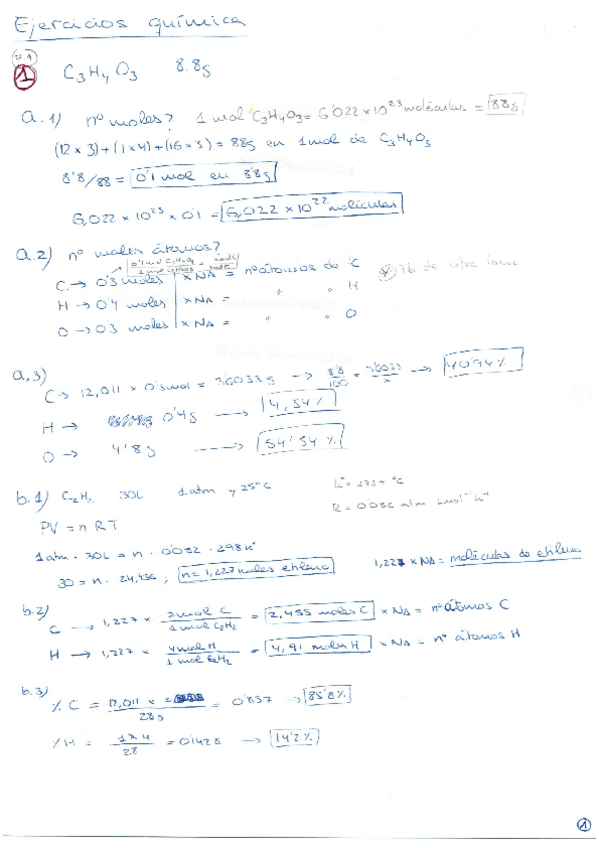 Ejercicios química
1
C3H4O3 8.8g
a.1) nº moles? 1 mol C3H4O3 = 6'022 x 10^23 moléculas = 88g
(12 x 3) + (1 x 4) + (16 x 3) = 88g en 1 mol de C3H4O3
8'8/88 = 0'1 mol en 8'8g
6,022 x 10^23 x 0'1 = 6,022 x 10^22 moléculas
a.2) nº moles átomos?
C → 0'3 moles x NA = nº átomos de C
H → 0'4 moles x NA = " " H
O → 0'3 moles x NA = " " O
a.3)
C → 12,011 x 0'3 mol = 3'6033 g → 8'8/100 = 3'6033/x → 40'94%
H → 0'4g → 4,54%
O → 4'8g → 54'54%
b.1) C2H4 30L 1 atm y 25ºC
K = 273 + ºC
R = 0'082 atm L mol^-1 K^-1
PV = nRT
1 atm · 30L = n · 0'082 · 298K
30 = n · 24,436 ; n = 1,227 moles etileno 1,227 x NA = moléculas de etileno
b.2)
C → 1,227 x 2 mol C / 1 mol C2H2 = 2,455 moles C x NA = nº átomos C
H → 1,227 x 4 mol H / 1 mol C2H2 = 4,91 moles H x NA = nº átomos H
b.3)
% C = 12,011 x 2 / 28g = 0'857 → 85'8%
% H = 1 x 4 / 28 = 0'1428 → 14'2%
1